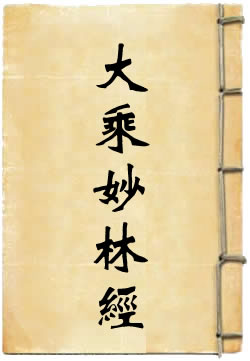 大乘妙林經